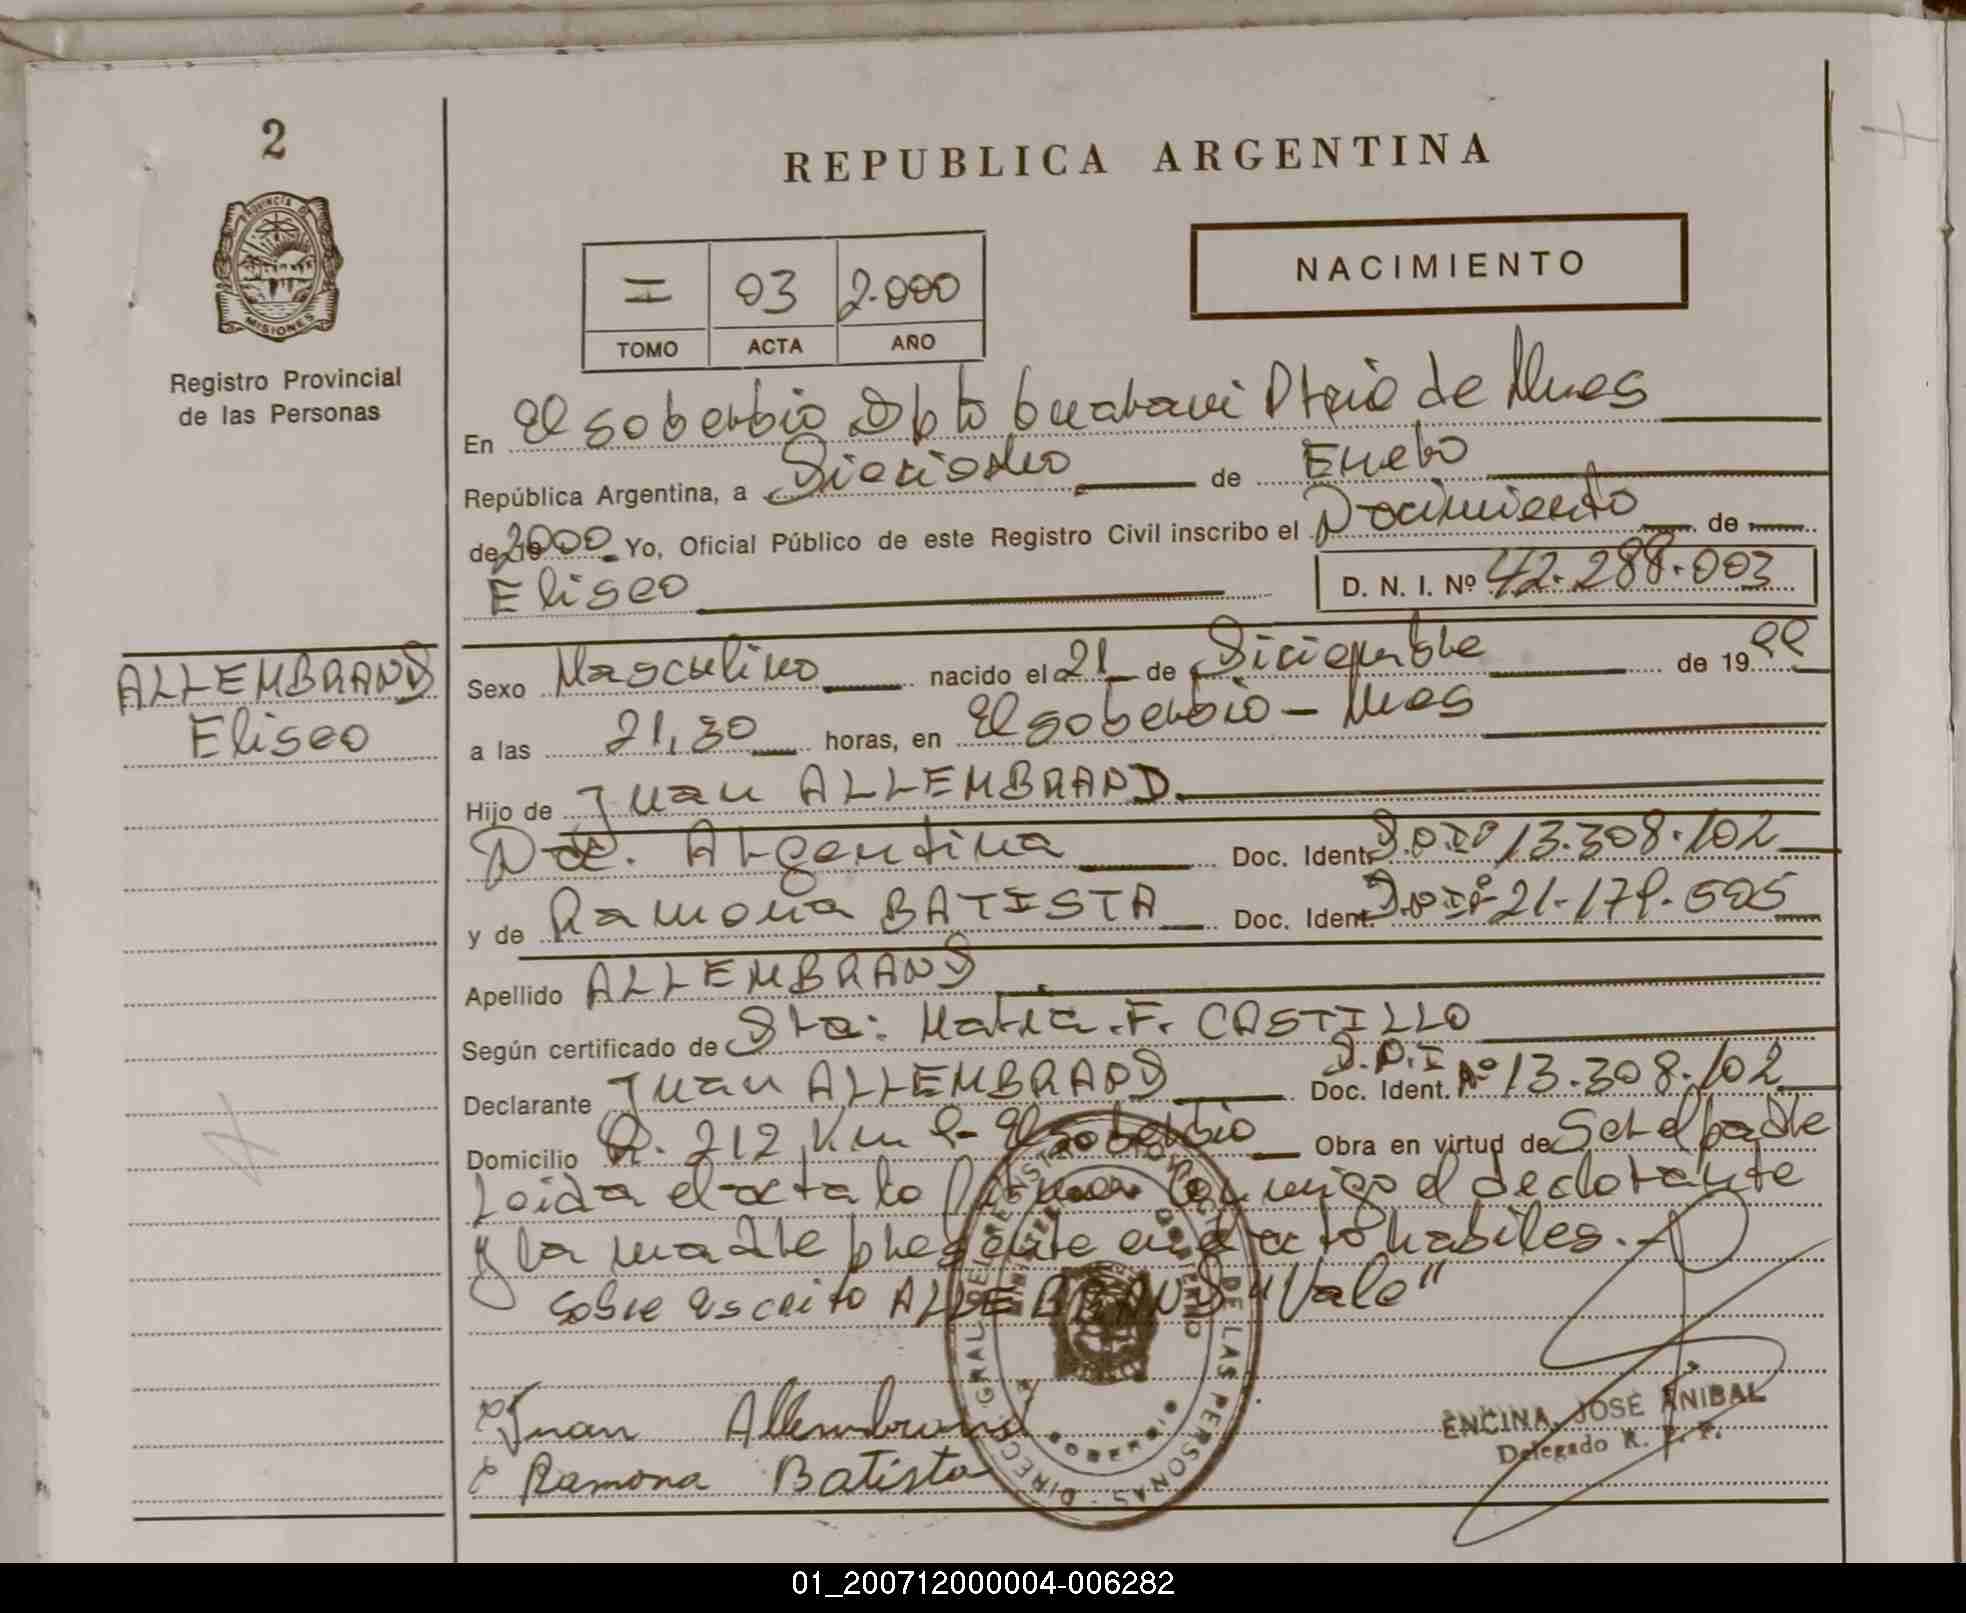 2
PROVINCIA DE
MISIONES
Registro Provincial
de las Personas
REPUBLICA ARGENTINA
I 03 2.000
TOMO ACTA AÑO
NACIMIENTO
En El soberbio Dpto Guarani Pcia de Mnes
República Argentina, a Dieciocho de Enero
de 2000 Yo, Oficial Público de este Registro Civil inscribo el Nacimiento de
Eliseo
D. N. I. Nº 42.288.003
ALLEMBRAND
Eliseo
Sexo Masculino nacido el 21 de Diciembre de 1999
a las 21,30 horas, en El soberbio - Mnes
Hijo de Juan ALLEMBRAND
Nac. Argentina Doc. Ident. D.N.I Nº 13.308.102
y de Ramona BATISTA Doc. Ident. D.N.I Nº 21.179.595
Apellido ALLEMBRAND
Según certificado de Dra: Maria.F. CASTILLO
Declarante Juan ALLEMBRAND Doc. Ident. D.N.I Nº 13.308.102
Domicilio R. 212 Km 9- El soberbio Obra en virtud de Ser el padre
Leida el acta la firman conmigo el declarante
y la madre presente en el acto habiles.-
sobre escrito ALLEMBRAND "Vale"
Juan Allembrand
Ramona Batista
ENCINA, JOSE ANIBAL
Delegado R. P. P.
DIRECC. GRAL. DEL REGISTRO PROVINCIAL DE LAS PERSONAS
MINISTERIO DE GOBIERNO
01_200712000004-006282